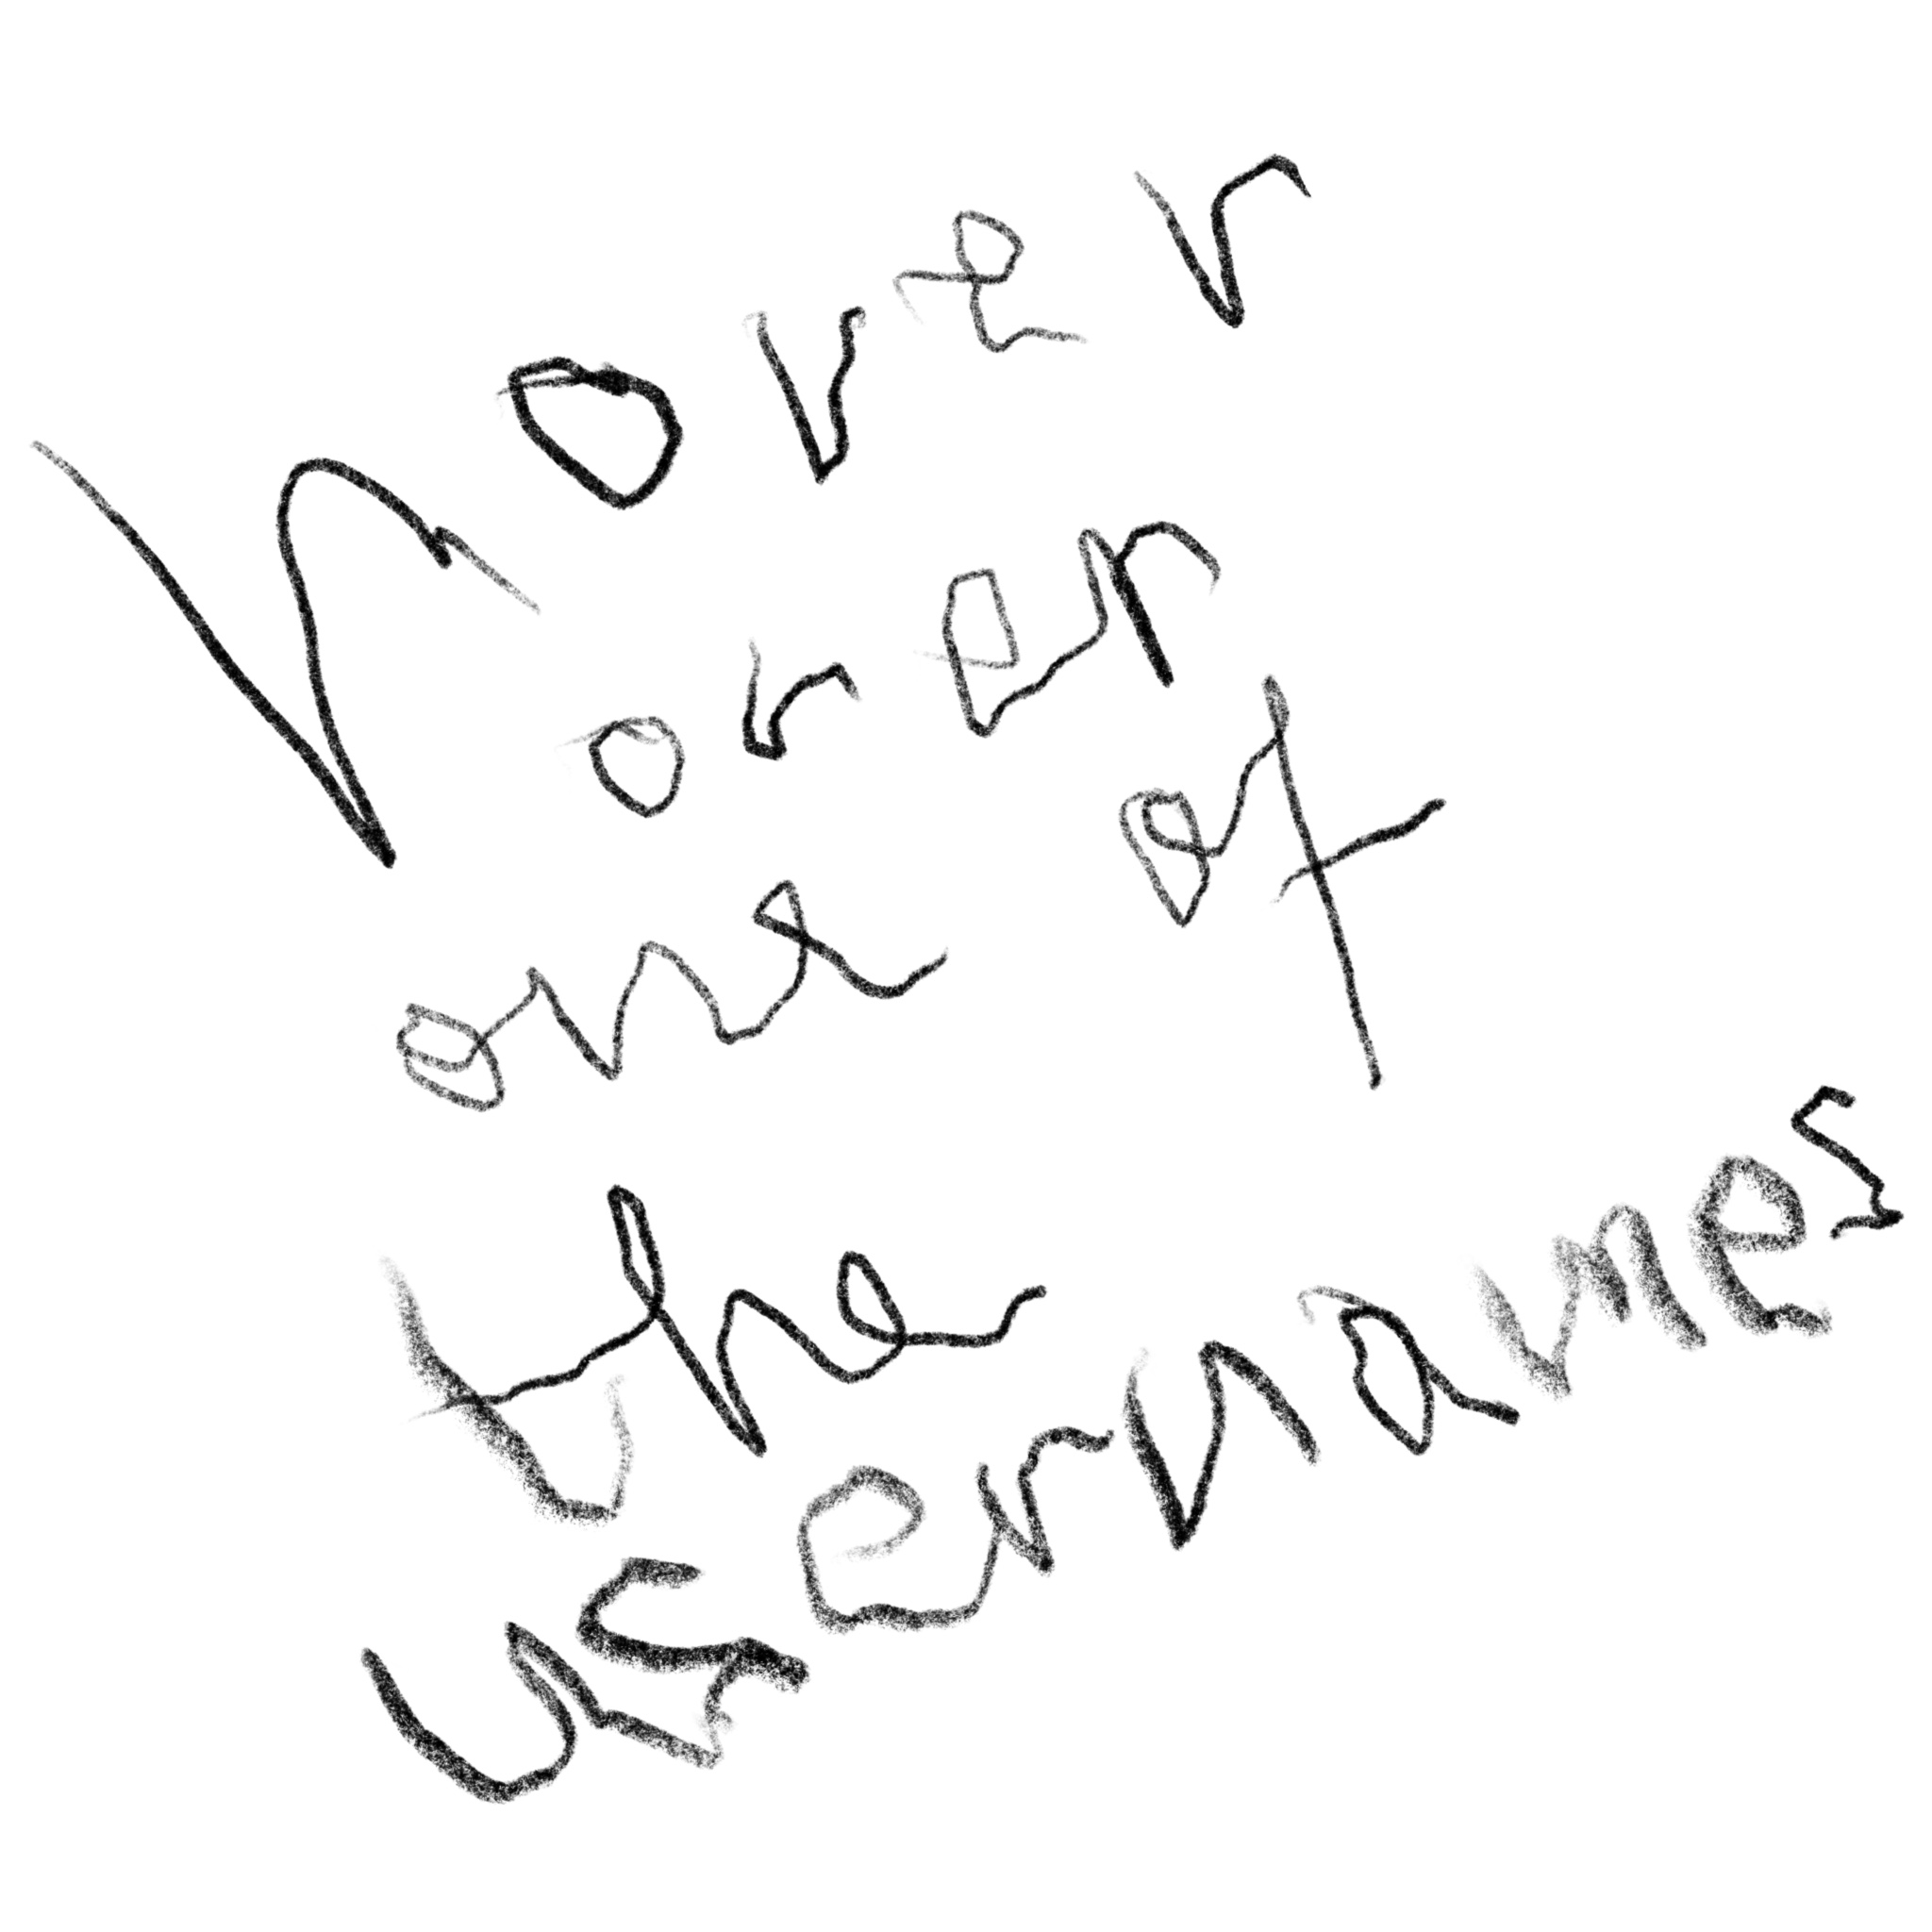 hover
over
one of
the
usernames